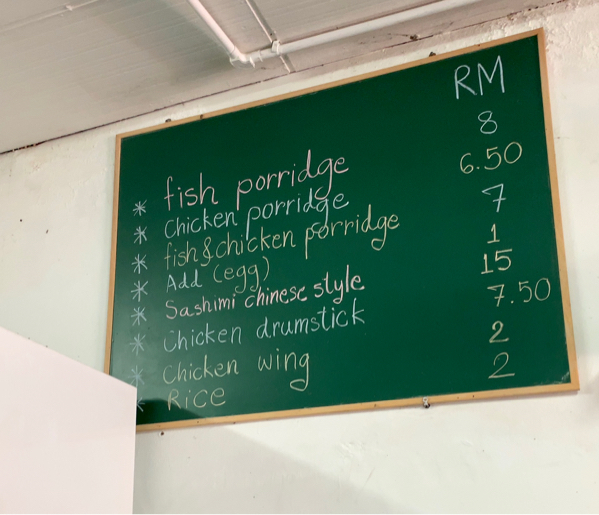 RM
* fish porridge 8
* Chicken porridge 6.50
* fish & chicken porridge 7
* Add (egg) 1
* Sashimi chinese style 15
* Chicken drumstick 7.50
* Chicken wing 2
* Rice 2